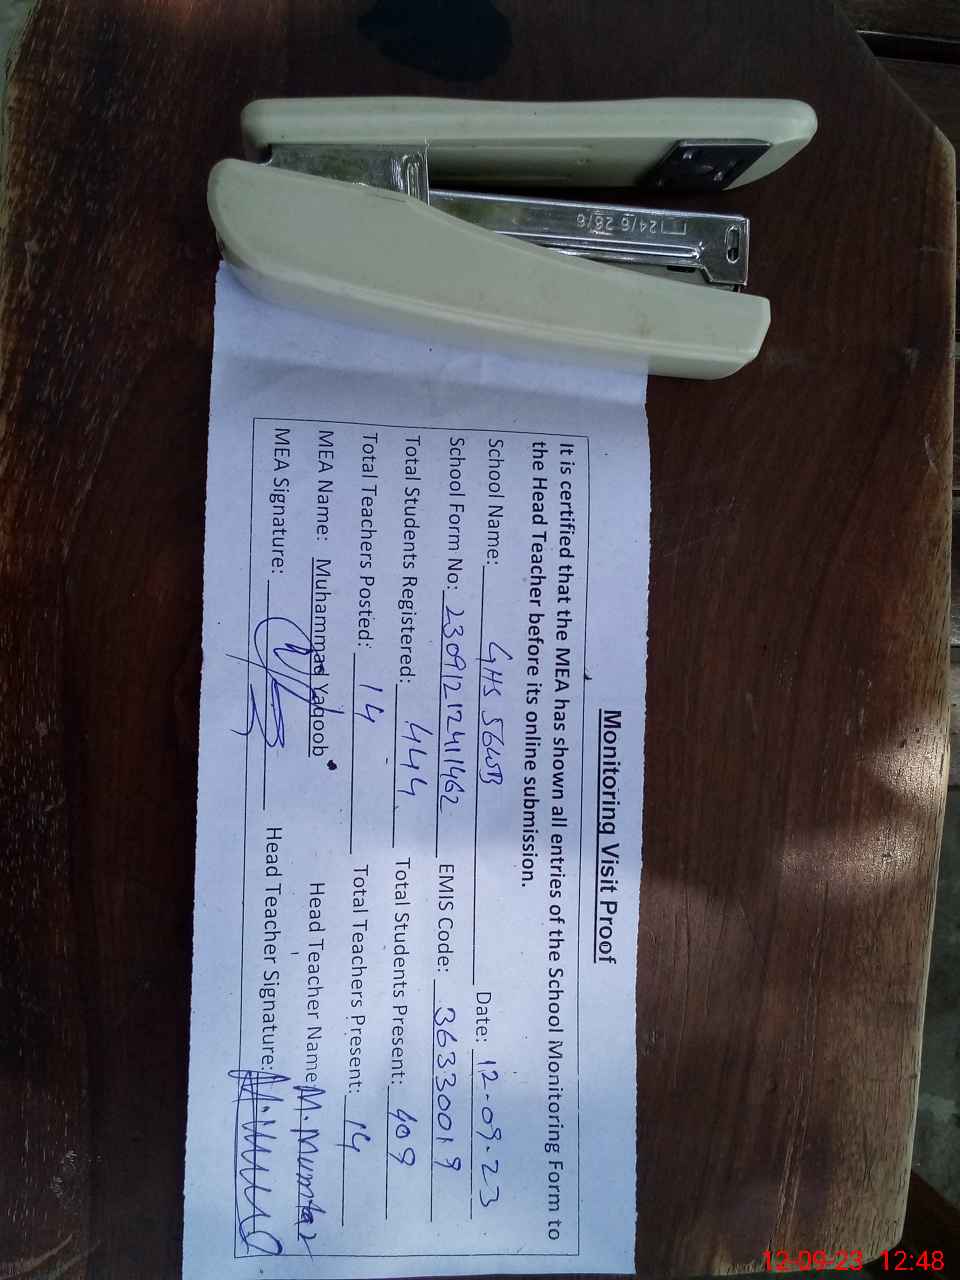 Monitoring Visit Proof
It is certified that the MEA has shown all entries of the School Monitoring Form to
the Head Teacher before its online submission.
School Name: GHS 56WB Date: 12-09-23
School Form No: 230912124111462 EMIS Code: 36330019
Total Students Registered: 444 Total Students Present: 409
Total Teachers Posted: 14 Total Teachers Present: 14
MEA Name: Muhammad Yaqoob Head Teacher Name M. Mumtaz
MEA Signature: Head Teacher Signature:
24/6 26/6
12-09-23 12:48